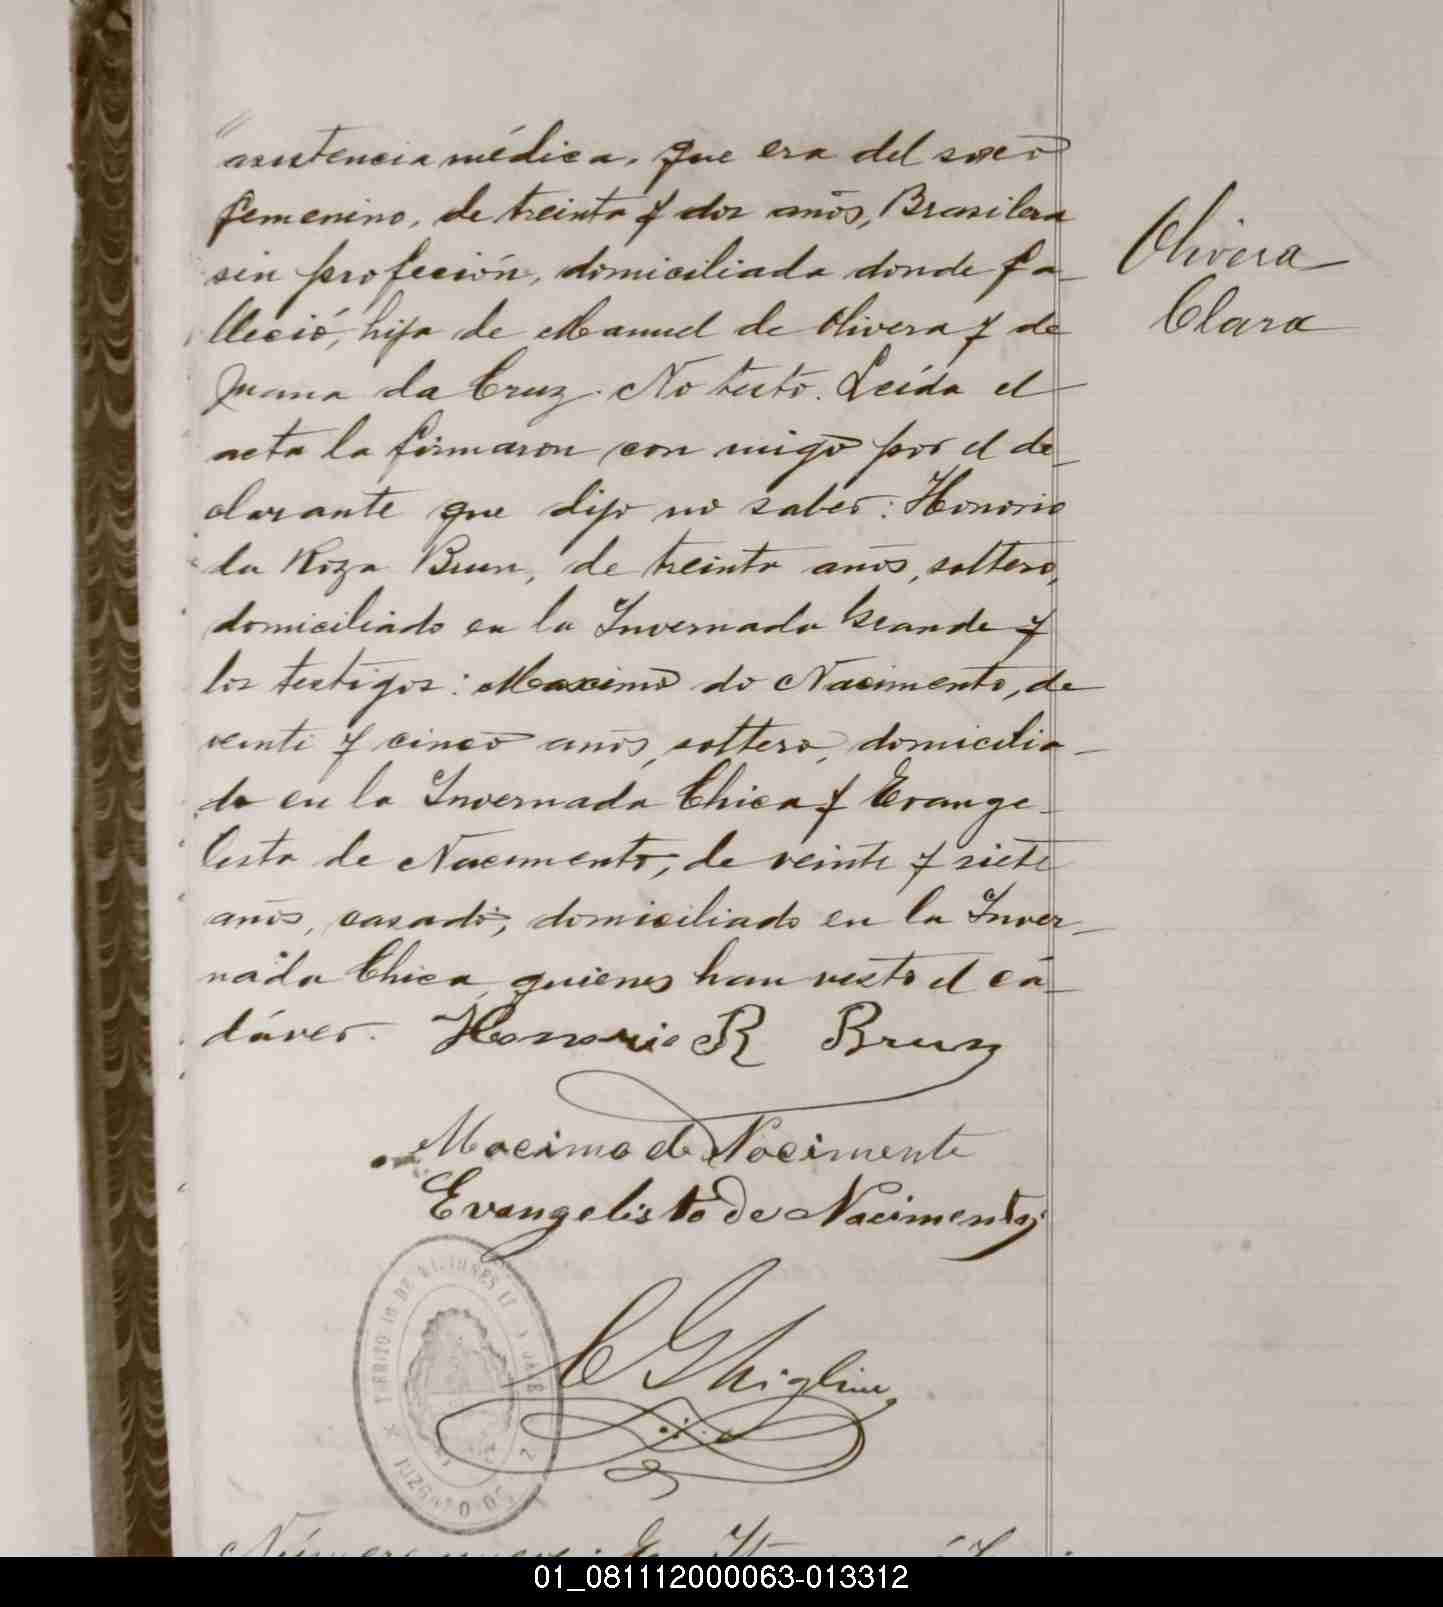 asistencia médica, que era del sexo
femenino, de treinta y dos años, Brasilera
sin profeción, domiciliada donde fa-
lleció, hija de Manuel de Olivera y de
Juana da Cruz. No testó. Leída el
acta la firmaron con migo por el de-
clarante que dijo no saber: Honorio
da Roza Brun, de treinta años, soltero,
domiciliado en la Invernada Grande y
los testigos: Maximo do Nacimento, de
veinti y cinco años, soltero, domicilia-
do en la Invernada Chica y Evange-
listo de Nacimento, de veinte y siete
años, casado, domiciliado en la Inver-
nada Chica, quienes han visto el ca-
dáver. Honorio R Brun
Olivera
Clara
Macimo de Nocimento
Evangelisto de Nacimento
C Ghiglino
TERRITORIO DE MISIONES
JUZGADO DE
Número nueve: En
01_081112000063-013312